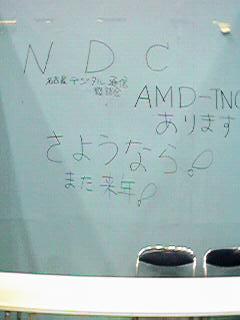 NDC
名古屋デジタル通信
懇談会
AMD-TNC
あります
さようなら。
また来年。